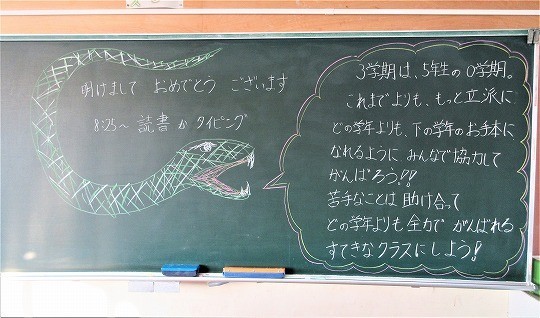 明けまして おめでとう ございます
8:25〜 読書 か タイピング
3学期は、5年生の0学期。
これまでよりも、もっと立派に
どの学年よりも、下の学年のお手本に
なれるように、みんなで協力して
がんばろう!!
苦手なことは助け合って
どの学年よりも全力でがんばれる
すてきなクラスにしよう!